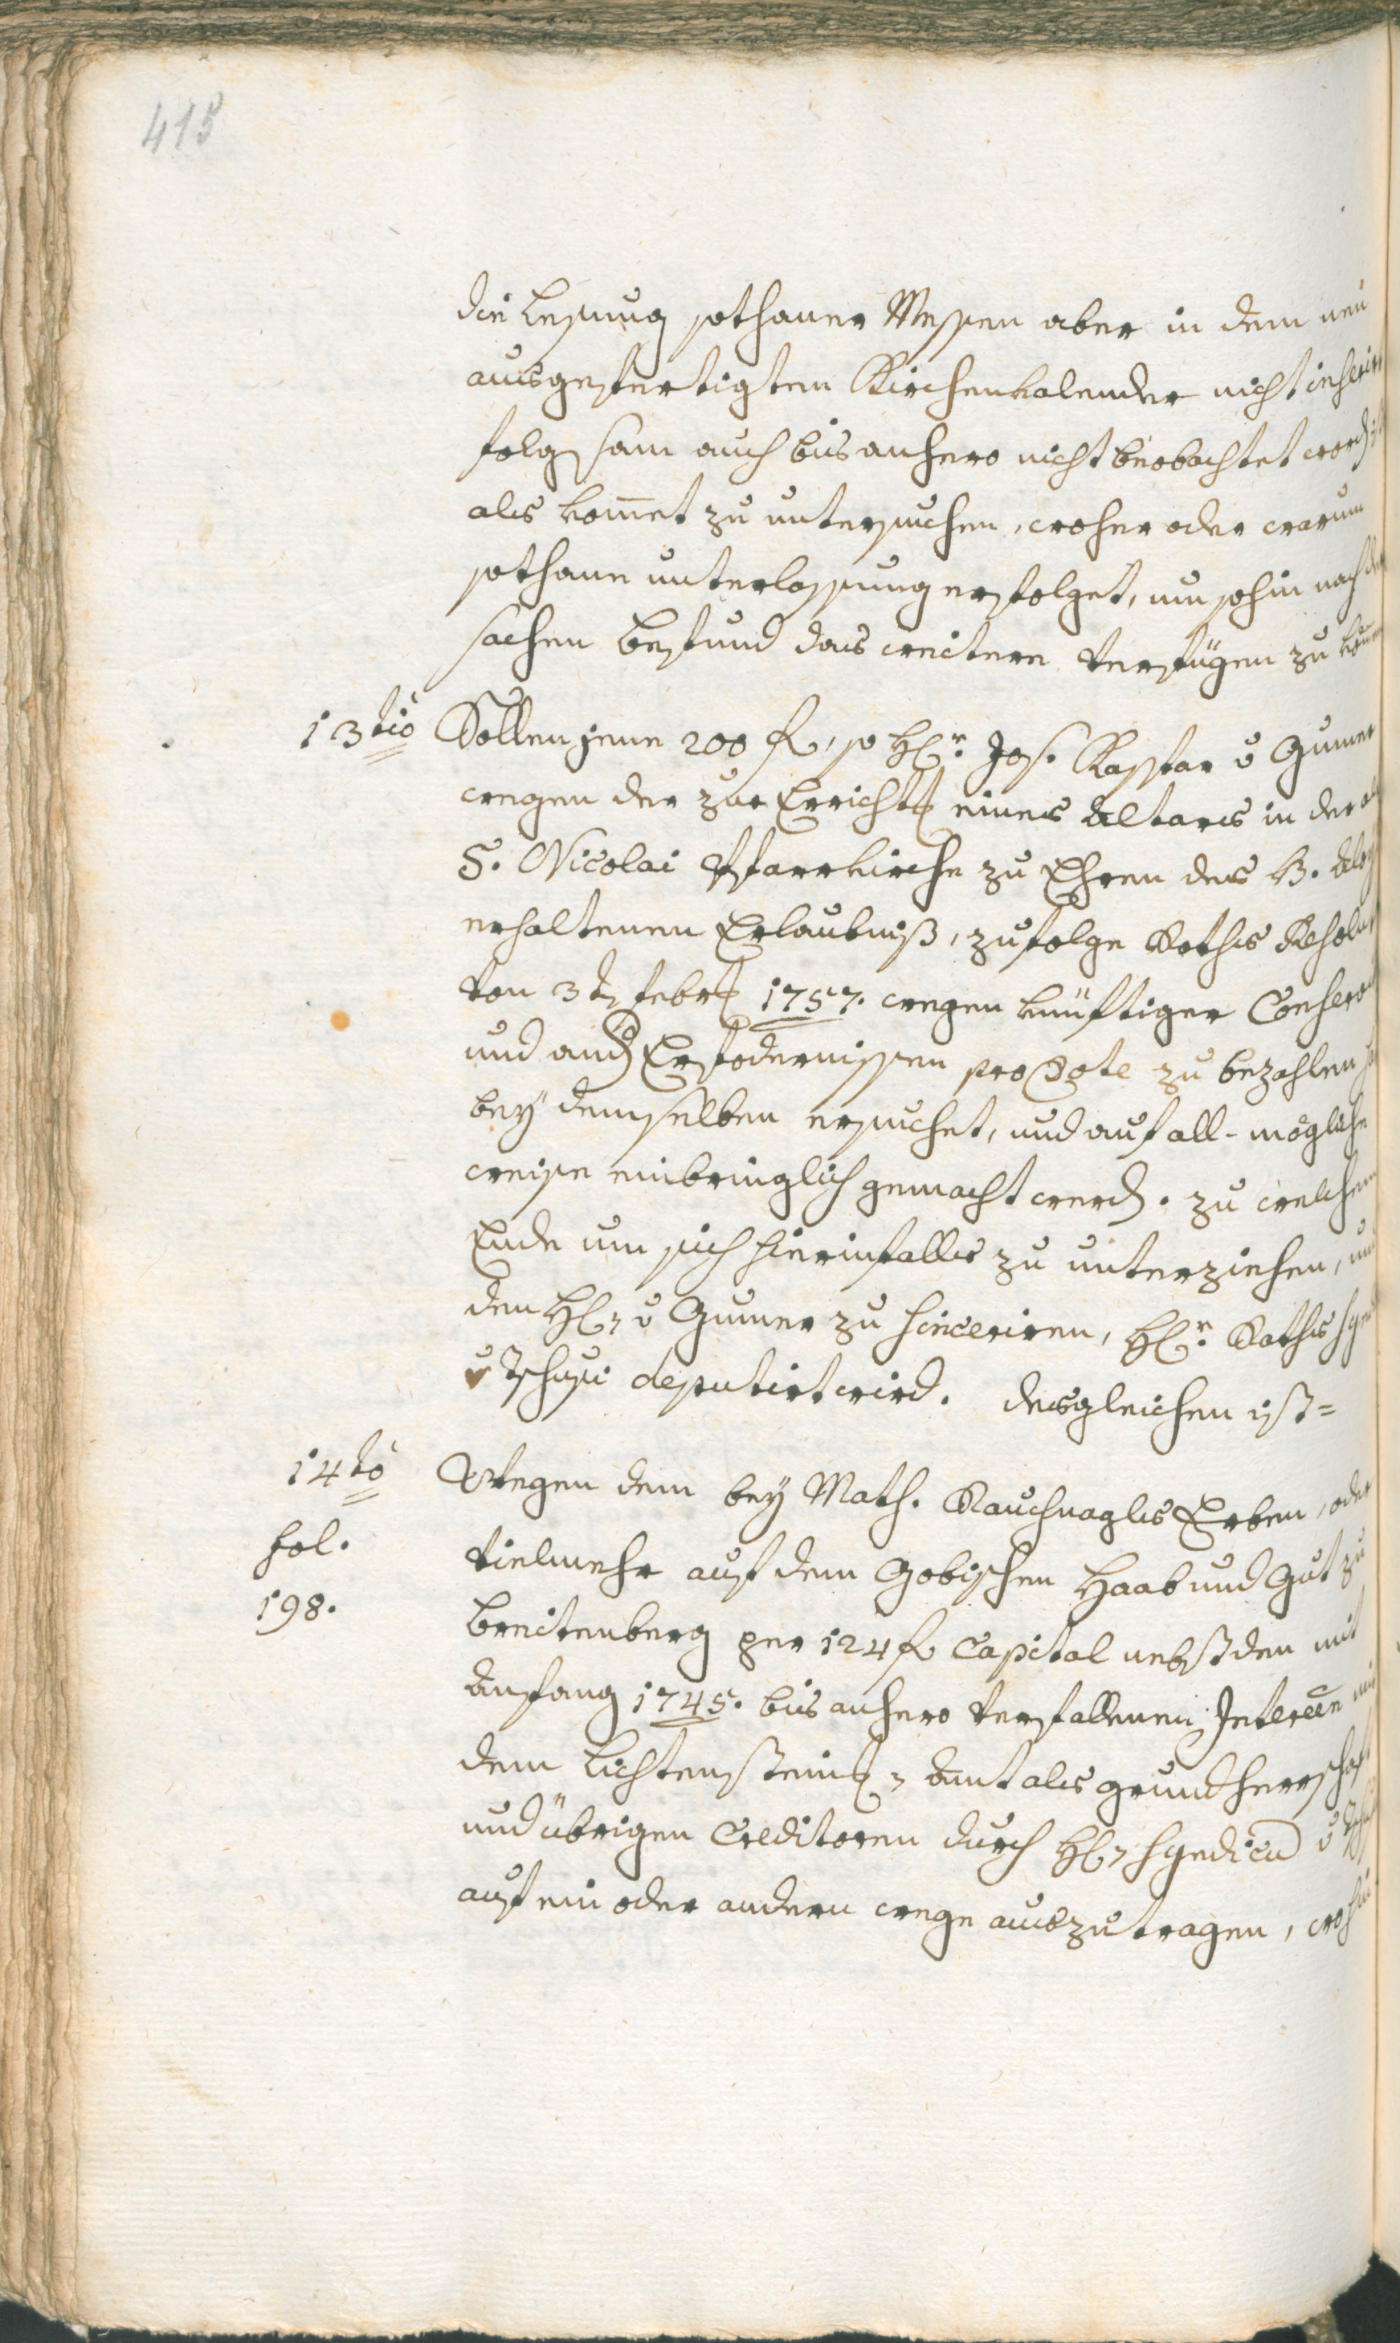 415
die lesung sothaner Messen aber in dem neu
ausgefertigtem Kirchenkalender nicht inserirt
folgsam auch bis anhero nicht beobachtet word
als kom̅et zu untersuchen, woher oder warum
sothane unterlassung erfolget, um sohin nach
sachen befund das weitere verfügen zu
13tiò Sollen jene 200 fl, so H: Jos. Kaspar v Gumer
wegen der zur Erricht eines Altars in der
S. Nicolai Pfarrkirche zu Ehren des B.
erhaltenen Erlaubniß, zufolge Raths Resolut
von 3t febr 1757. wegen künftiger Conserva
und and Erfodernissen pro Dote zu bezahlen
bey demselben ersuchet, und auf all-mögliche
weise einbringlich gemacht werd. zu welchem
Ende um sich hierinfalls zu unterziehen, und
den H v Gumer zu sinceriren, H: Raths
v Tschusi deputirt wird. desgleichen ist=
14tò Wegen dem bey Math. Rauchnagls Erben, oder
fol. vielmehr auf dem Gobischen Haab und Gut zu
198. breitenberg per 124 fl Capital nebst den mit
Anfang 1745. bis anhero verfallenen Intereße mit
dem Lichtenstein Amt als grundherrschaft
und übrigen Creditoren durch H Syndicu v
auf ein oder andern wege auszutragen,